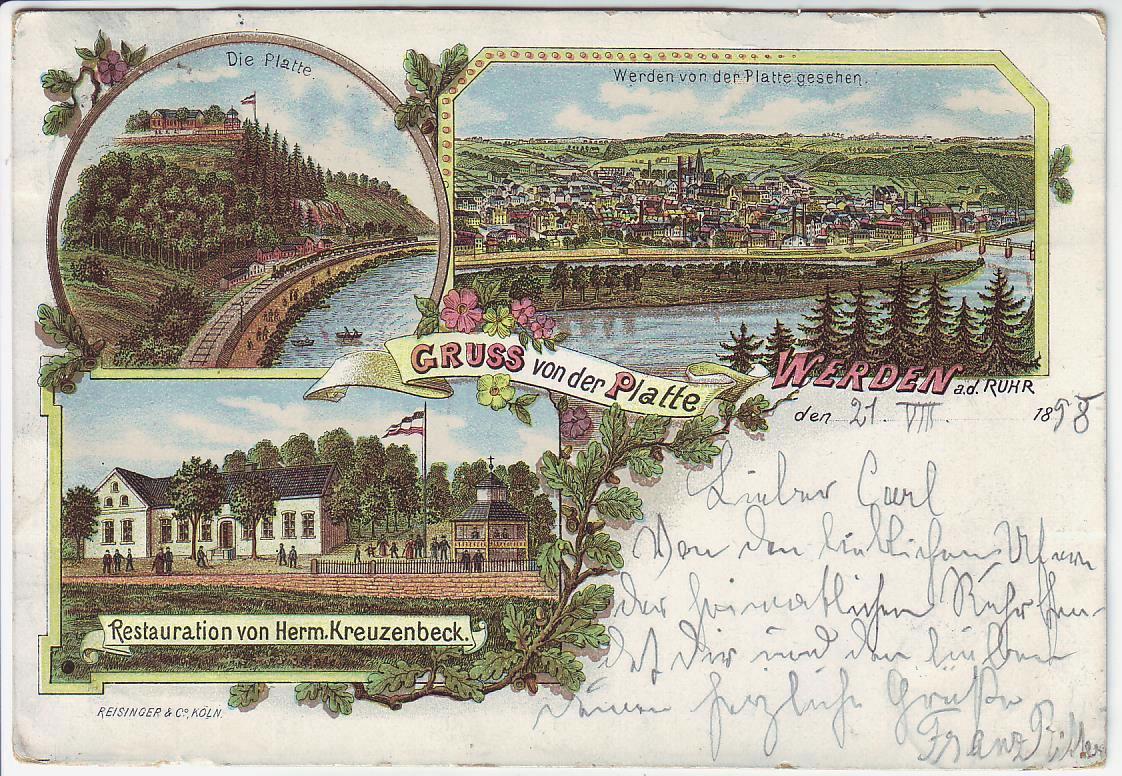 Die Platte.
Werden von der Platte gesehen.
GRUSS von der Platte
WERDEN a.d. RUHR
den 21. VIII. 1898
Lieber Carl
Von den lieblichen Ufern
der heimatlichen Ruhr sen-
det Dir und den lieben
Deinen herzliche Grüße
Franz
Restauration von Herm. Kreuzenbeck.
REISINGER & Co, KÖLN.